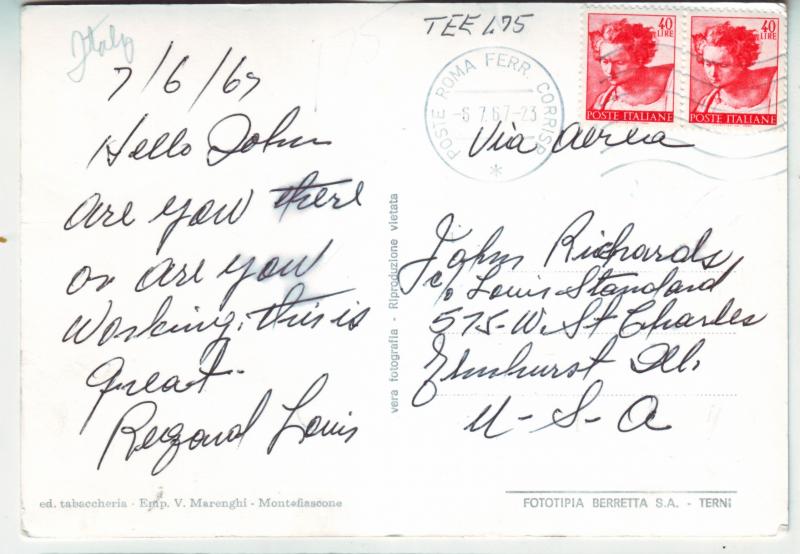 Italy
7/6/67
Hello John
are you there
or are you
working, this is
great.
Regard Louis
ed. tabaccheria - Emp. V. Marenghi - Montefiascone
vera fotografia - Riproduzione vietata
TEE 475
POSTE ROMA FERR. CORRISP.
-6.7.67-23
*
40
LIRE
POSTE ITALIANE
40
LIRE
POSTE ITALIANE
Via aerea
John Richards
c/o Louis Standard
575-W. St Charles
Elmhurst Ill.
U-S-A
FOTOTIPIA BERRETTA S.A. - TERNI